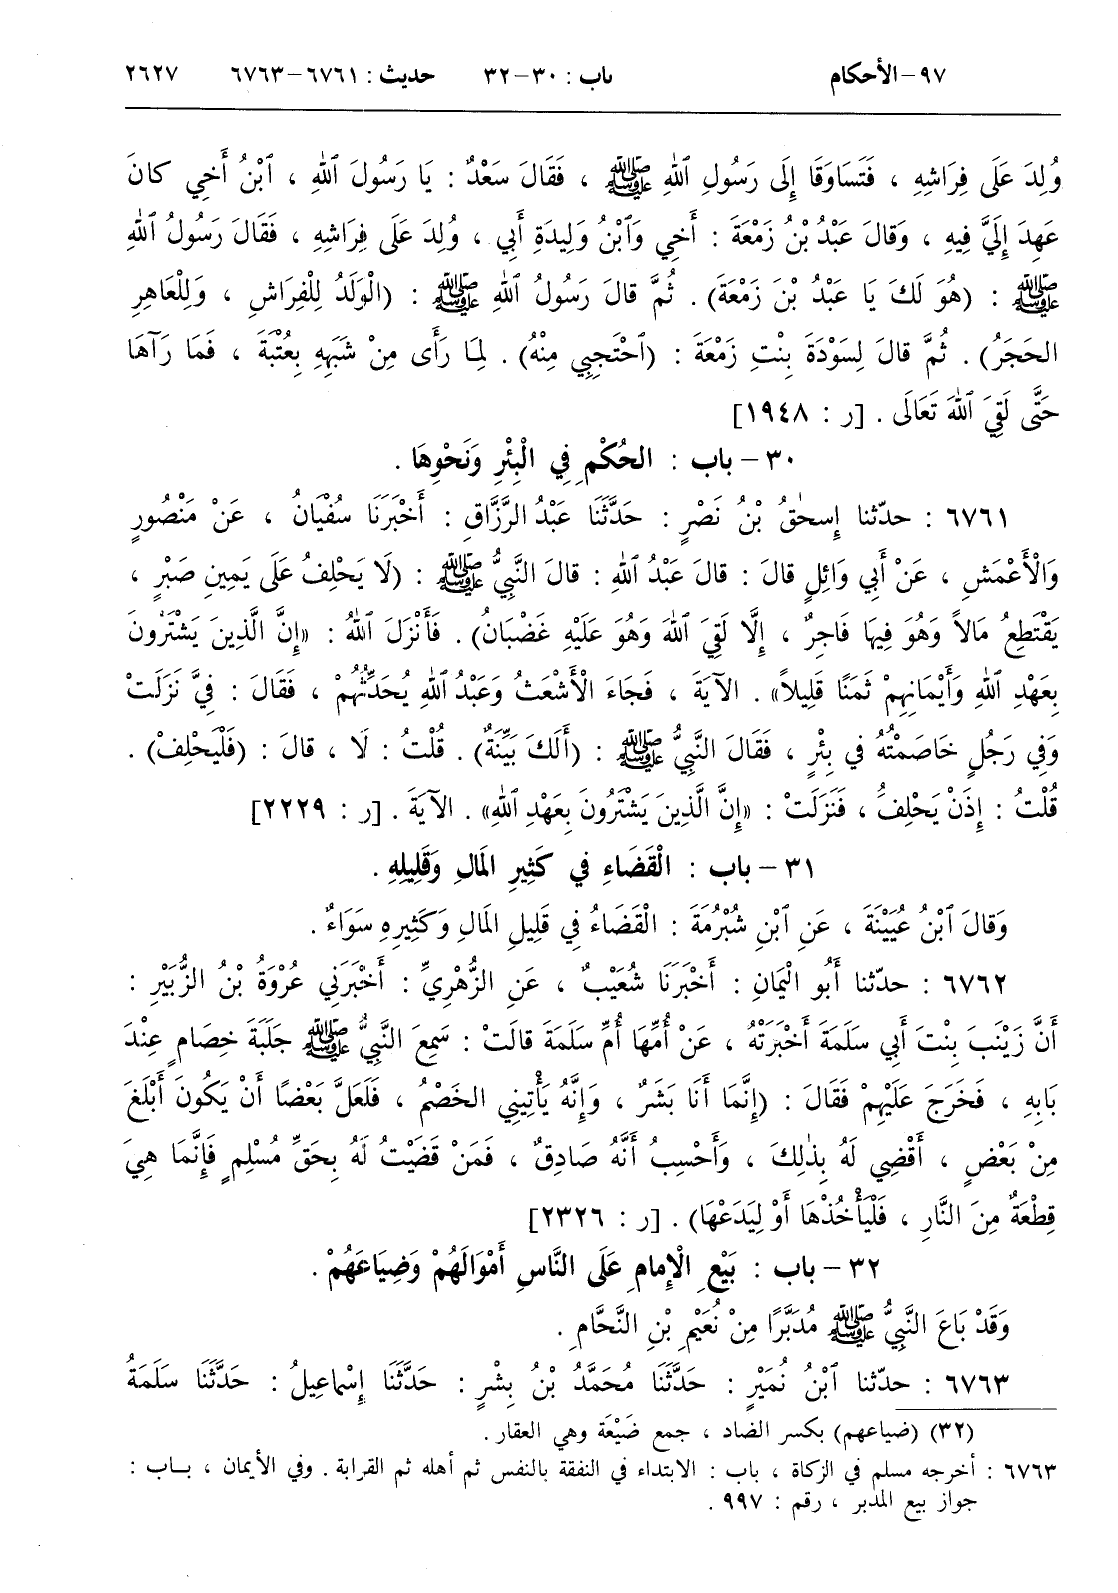 ٩٧-الأحكام باب : ٣٠-٣٢ حديث : ٦٧٦١-٦٧٦٣ ٢٦٢٧
وُلِدَ عَلَى فِرَاشِهِ ، فَتَسَاوَقَا إِلَى رَسُولِ ٱللهِ ﷺ ، فَقَالَ سَعْدٌ : يَا رَسُولَ ٱللهِ ، ٱبْنُ أَخِي كانَ
عَهِدَ إِلَيَّ فِيهِ ، وَقالَ عَبْدُ بْنُ زَمْعَةَ : أَخِي وَٱبْنُ وَلِيدَةِ أَبِي ، وُلِدَ عَلَى فِرَاشِهِ ، فَقَالَ رَسُولُ ٱللهِ
ﷺ : (هُوَ لَكَ يَا عَبْدُ بْنَ زَمْعَةَ) . ثُمَّ قالَ رَسُولُ ٱللهِ ﷺ : (الْوَلَدُ لِلْفِرَاشِ ، وَلِلْعَاهِرِ
الحَجَرُ) . ثُمَّ قالَ لِسَوْدَةَ بِنْتِ زَمْعَةَ : (ٱحْتَجِبِي مِنْهُ) . لِمَا رَأَى مِنْ شَبَهِهِ بِعُتْبَةَ ، فَمَا رَآهَا
حَتَّى لَقِيَ ٱللهَ تَعَالَى . [ر : ١٩٤٨]
٣٠ - باب : الحُكْمِ فِي الْبِئْرِ وَنَحْوِهَا .
٦٧٦١ : حدّثنا إِسحٰقُ بْنُ نَصْرٍ : حَدَّثَنَا عَبْدُ الرَّزَّاقِ : أَخْبَرَنَا سُفْيَانُ ، عَنْ مَنْصُورٍ
وَالْأَعْمَشِ ، عَنْ أَبِي وَائِلٍ قالَ : قالَ عَبْدُ ٱللهِ : قالَ النَّبِيُّ ﷺ : (لَا يَحْلِفُ عَلَى يَمِينِ صَبْرٍ ،
يَقْتَطِعُ مَالاً وَهُوَ فِيهَا فَاجِرٌ ، إِلَّا لَقِيَ ٱللهَ وَهُوَ عَلَيْهِ غَضْبَانُ) . فَأَنْزَلَ ٱللهُ : «إِنَّ الَّذِينَ يَشْتَرُونَ
بِعَهْدِ ٱللهِ وَأَيْمَانِهِمْ ثَمَنًا قَلِيلاً» . الآيَةَ ، فَجَاءَ الْأَشْعَثُ وَعَبْدُ ٱللهِ يُحَدِّثُهُمْ ، فَقَالَ : فِيَّ نَزَلَتْ
وَفِي رَجُلٍ خَاصَمْتُهُ في بِئْرٍ ، فَقَالَ النَّبِيُّ ﷺ : (أَلَكَ بَيِّنَةٌ) . قُلْتُ : لَا ، قالَ : (فَلْيَحْلِفْ) .
قُلْتُ : إِذَنْ يَحْلِفُ ، فَنَزَلَتْ : «إِنَّ الَّذِينَ يَشْتَرُونَ بِعَهْدِ ٱللهِ» . الآيَةَ . [ر : ٢٢٢٩]
٣١ - باب : الْقَضَاءِ في كَثِيرِ المَالِ وَقَلِيلِهِ .
وَقالَ ٱبْنُ عُيَيْنَةَ ، عَنِ ٱبْنِ شُبْرُمَةَ : الْقَضَاءُ فِي قَلِيلِ المَالِ وَكَثِيرِهِ سَوَاءٌ .
٦٧٦٢ : حدّثنا أَبُو الْيَمانِ : أَخْبَرَنَا شُعَيْبٌ ، عَنِ الزُّهْرِيِّ : أَخْبَرَنِي عُرْوَةُ بْنُ الزُّبَيْرِ :
أَنَّ زَيْنَبَ بِنْتَ أَبِي سَلَمَةَ أَخْبَرَتْهُ ، عَنْ أُمِّهَا أُمِّ سَلَمَةَ قالَتْ : سَمِعَ النَّبِيُّ ﷺ جَلَبَةَ خِصَامٍ عِنْدَ
بَابِهِ ، فَخَرَجَ عَلَيْهِمْ فَقَالَ : (إِنَّمَا أَنَا بَشَرٌ ، وَإِنَّهُ يَأْتِينِي الخَصْمُ ، فَلَعَلَّ بَعْضًا أَنْ يَكُونَ أَبْلَغَ
مِنْ بَعْضٍ ، أَقْضِي لَهُ بِذٰلِكَ ، وَأَحْسِبُ أَنَّهُ صَادِقٌ ، فَمَنْ قَضَيْتُ لَهُ بِحَقِّ مُسْلِمٍ فَإِنَّمَا هِيَ
قِطْعَةٌ مِنَ النَّارِ ، فَلْيَأْخُذْهَا أَوْ لِيَدَعْهَا) . [ر : ٢٣٢٦]
٣٢ - باب : بَيْعِ الْإِمامِ عَلَى النَّاسِ أَمْوَالَهُمْ وَضِيَاعَهُمْ .
وَقَدْ بَاعَ النَّبِيُّ ﷺ مُدَبَّرًا مِنْ نُعَيْمِ بْنِ النَّحَّامِ .
٦٧٦٣ : حدّثنا ٱبْنُ نُمَيْرٍ : حَدَّثَنَا مُحَمَّدُ بْنُ بِشْرٍ : حَدَّثَنَا إِسْماعِيلُ : حَدَّثَنَا سَلَمَةُ
(٣٢) (ضياعهم) بكسر الضاد ، جمع ضَيْعَة وهي العقار .
٦٧٦٣ : أخرجه مسلم في الزكاة ، باب : الابتداء في النفقة بالنفس ثم أهله ثم القرابة . وفي الأيمان ، بـاب :
جواز بيع المدبر ، رقم : ٩٩٧ .